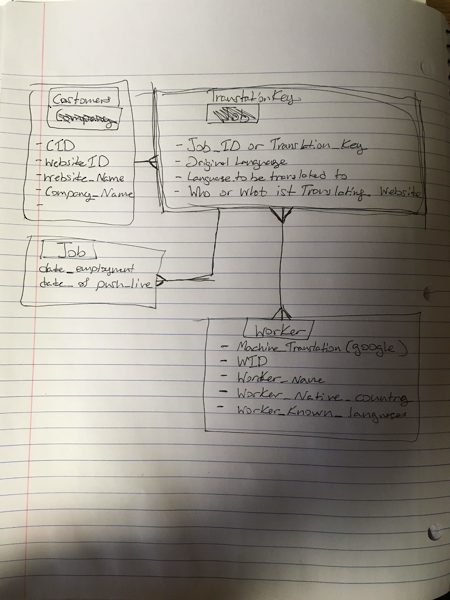 Customers
Company
- CID
- Website ID
- Website_Name
- Company_Name
-
TranslationKey
- Job_ID or Translation_Key
- Original Language
- Language to be translated to
- Who or What ist Translating_Website
Job
date_employment
date_of push_live
Worker
- Machine_Translation (google)
- WID
- Worker_Name
- Worker_Native_country
- Worker_Known_languages